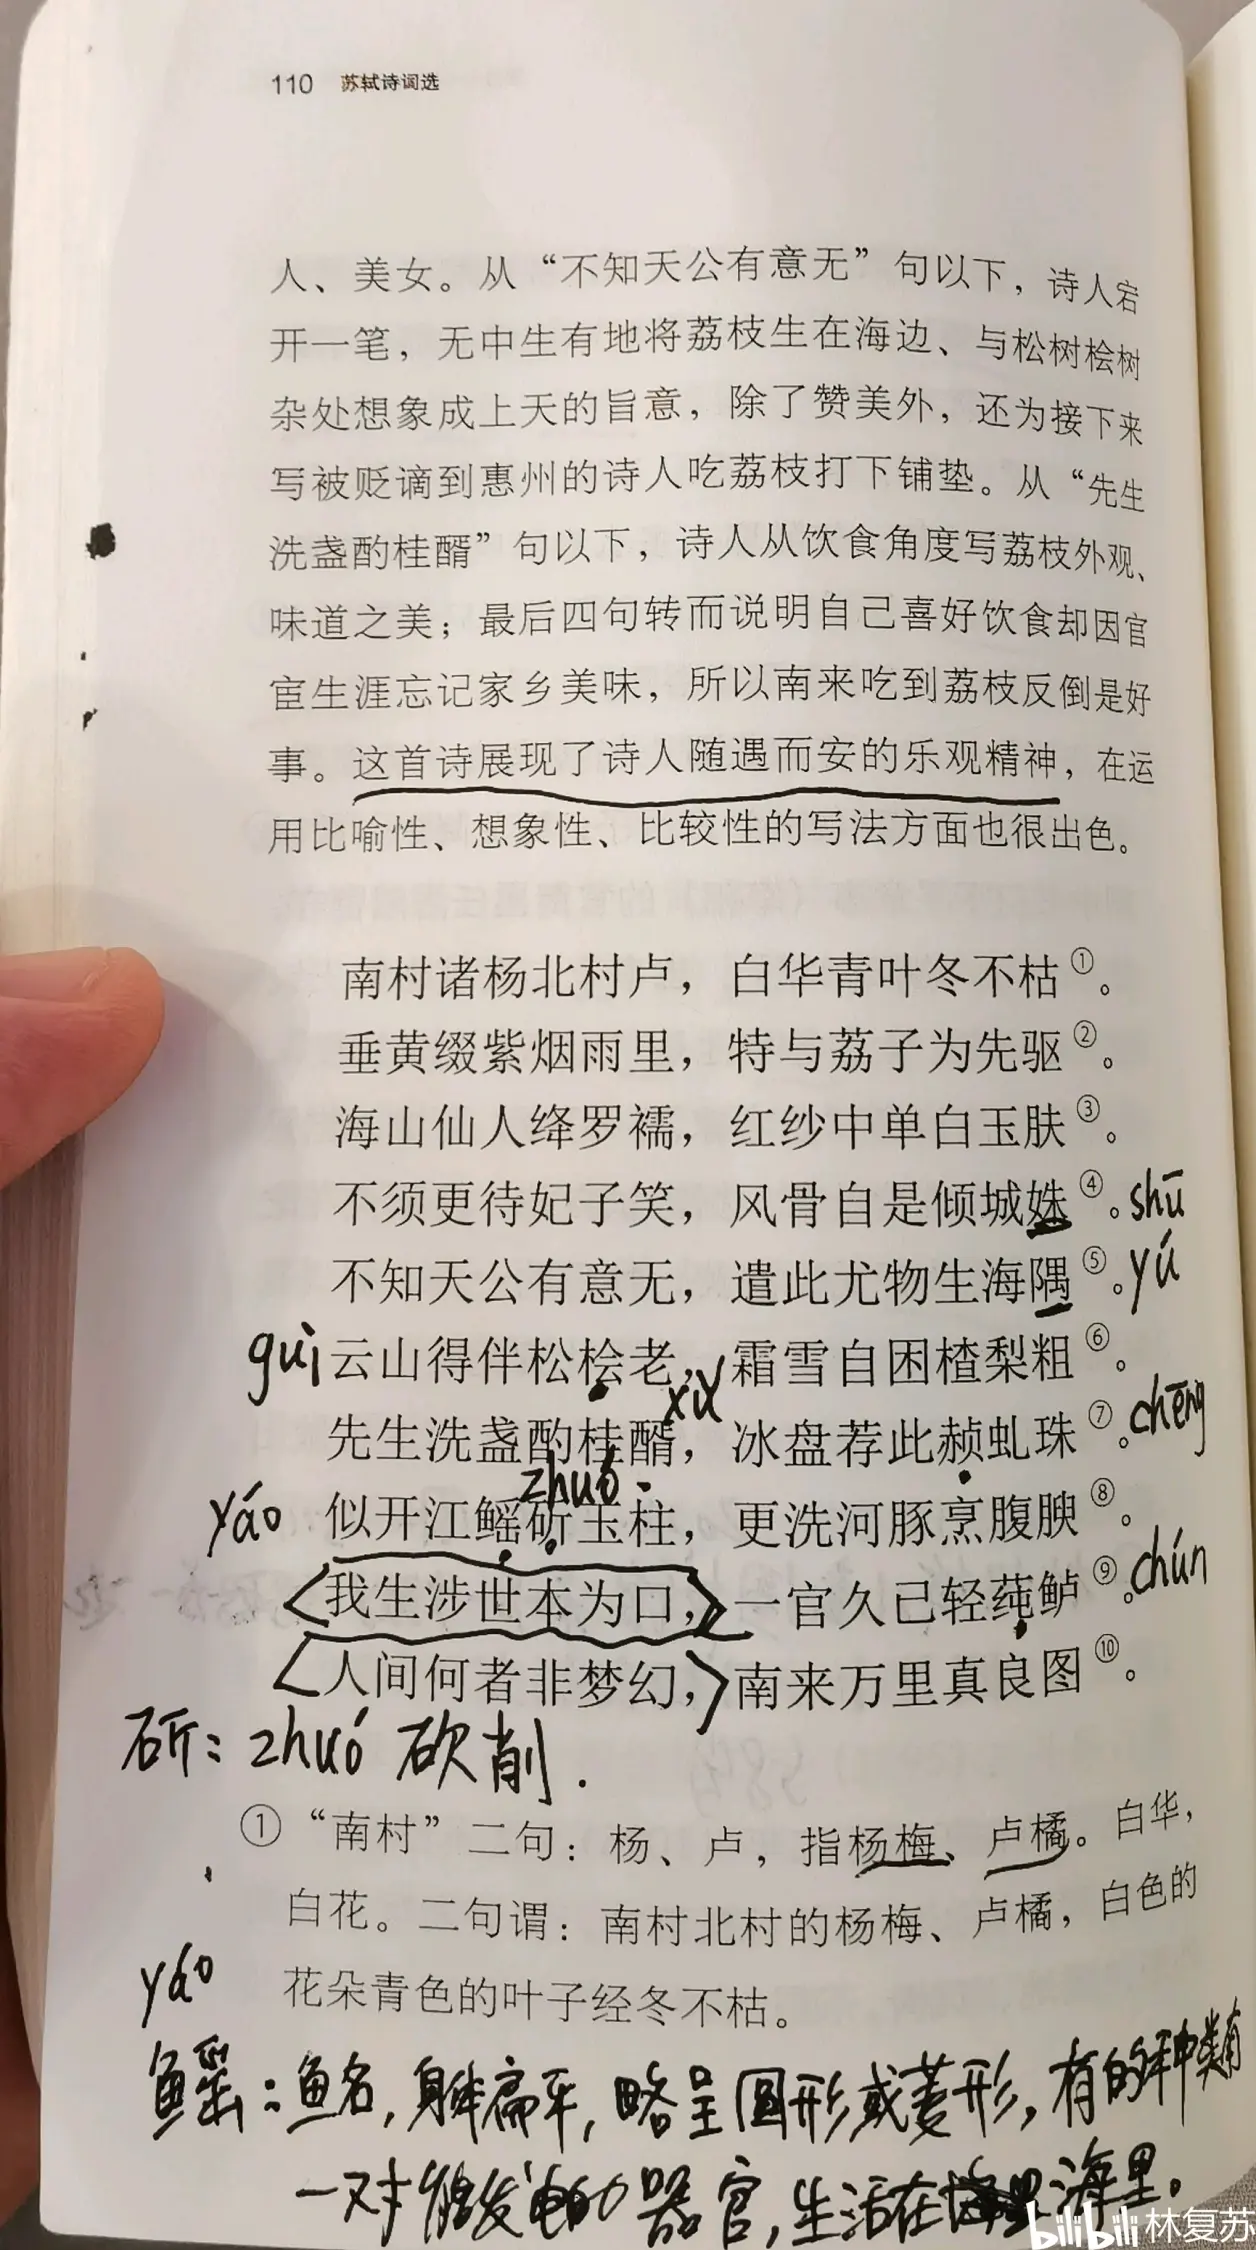 110 苏轼诗词选
人、美女。从“不知天公有意无”句以下，诗人宕
开一笔，无中生有地将荔枝生在海边、与松树桧树
杂处想象成上天的旨意，除了赞美外，还为接下来
写被贬谪到惠州的诗人吃荔枝打下铺垫。从“先生
洗盏酌桂醑”句以下，诗人从饮食角度写荔枝外观、
味道之美；最后四句转而说明自己喜好饮食却因官
宦生涯忘记家乡美味，所以南来吃到荔枝反倒是好
事。这首诗展现了诗人随遇而安的乐观精神，在运
用比喻性、想象性、比较性的写法方面也很出色。
南村诸杨北村卢，白华青叶冬不枯①。
垂黄缀紫烟雨里，特与荔子为先驱②。
海山仙人绛罗襦，红纱中单白玉肤③。
不须更待妃子笑，风骨自是倾城姝④。shū
不知天公有意无，遣此尤物生海隅⑤。yú
guì 云山得伴松桧老，霜雪自困楂梨粗⑥。
xǔ
先生洗盏酌桂醑，冰盘荐此赪虬珠⑦。chēng
zhuó
yáo 似开江鳐斫玉柱，更洗河豚烹腹腴⑧。
我生涉世本为口，一官久已轻莼鲈⑨。chún
人间何者非梦幻，南来万里真良图⑩。
斫：zhuó 砍削.
①“南村”二句：杨、卢，指杨梅、卢橘。白华，
白花。二句谓：南村北村的杨梅、卢橘，白色的
花朵青色的叶子经冬不枯。
yáo
鳐：鱼名，身体扁平，略呈圆形或菱形，有的种类有
一对能发电的器官，生活在海里。
bilibili 林复苏